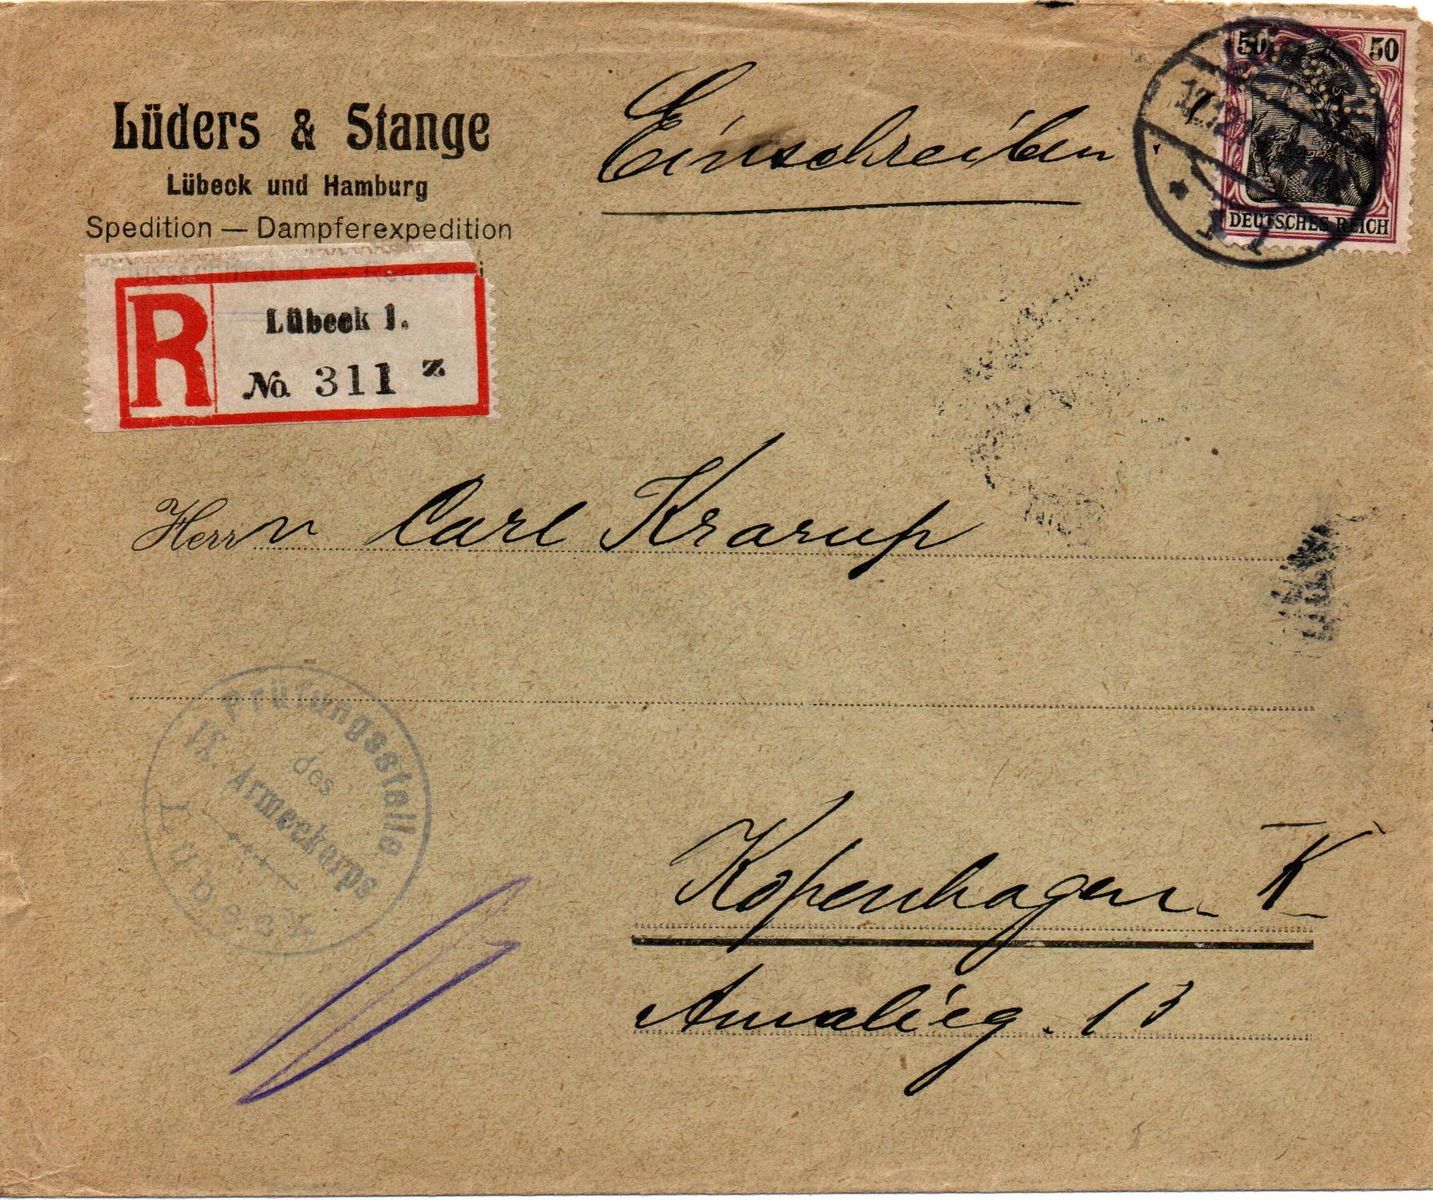 Lüders & Stange
Lübeck und Hamburg
Spedition — Dampferexpedition
Einschreiben
50 50
DEUTSCHES REICH
R
Lübeck 1.
No. 311 z
Herrn Carl Krarup
Prüfungsstelle
des
IX. Armeekorps
Lübeck
Kopenhagen K
Amalieg. 13